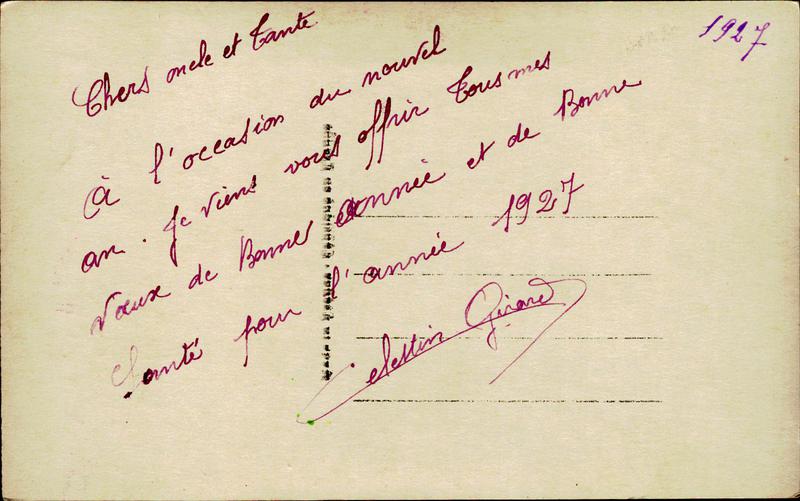 1927
Chers oncle et Tante
À l'occasion du nouvel
an. Je viens vous offrir Tous mes
Vœux de Bonnes année et de Bonne
Santé pour l'année 1927
Celestin Girard